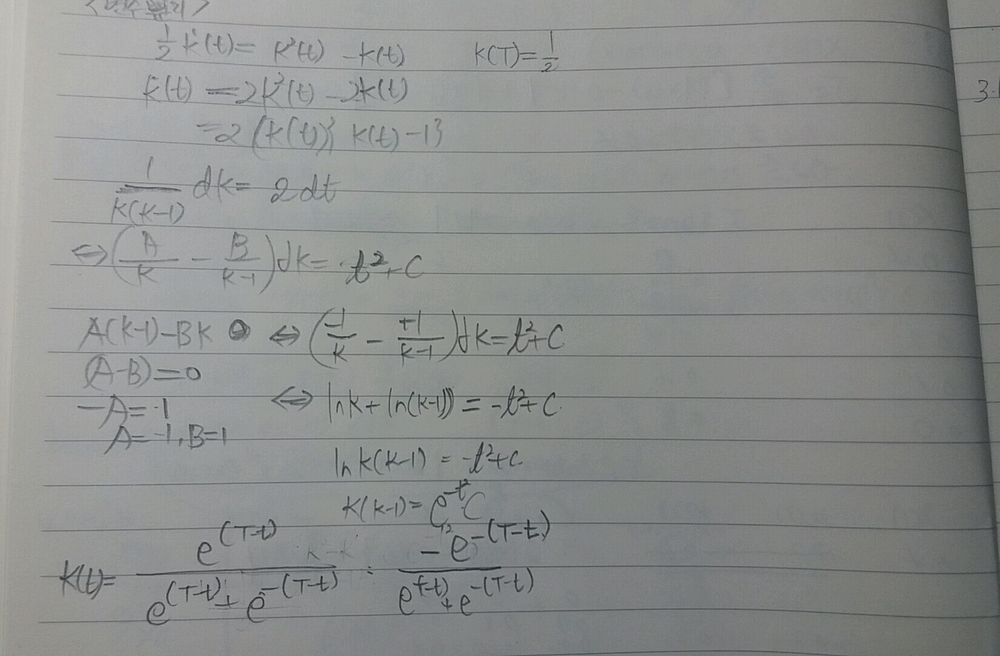 ½ k̇(t) = k²(t) - k(t) K(T) = ½
k̇(t) = 2k²(t) - 2k(t)
= 2(k(t)){k(t) - 1}
1/(k(k-1)) dk = 2dt
⇔ (A/k - B/(k-1)) dk = t² + C
A(k-1) - Bk ⇔ (-1/k - +1/(k-1)) dk = t² + C
(A-B) = 0
-A = 1 ⇔ ln k + ln(k-1)) = -t² + C
A = -1, B = 1
ln k(k-1) = -t² + C
k(k-1) = e^(-t²) C
k(t) = e^(T-t) / (e^(T-t) + e^-(T-t)) -e^-(T-t) / (e^(T-t) + e^-(T-t))
3.